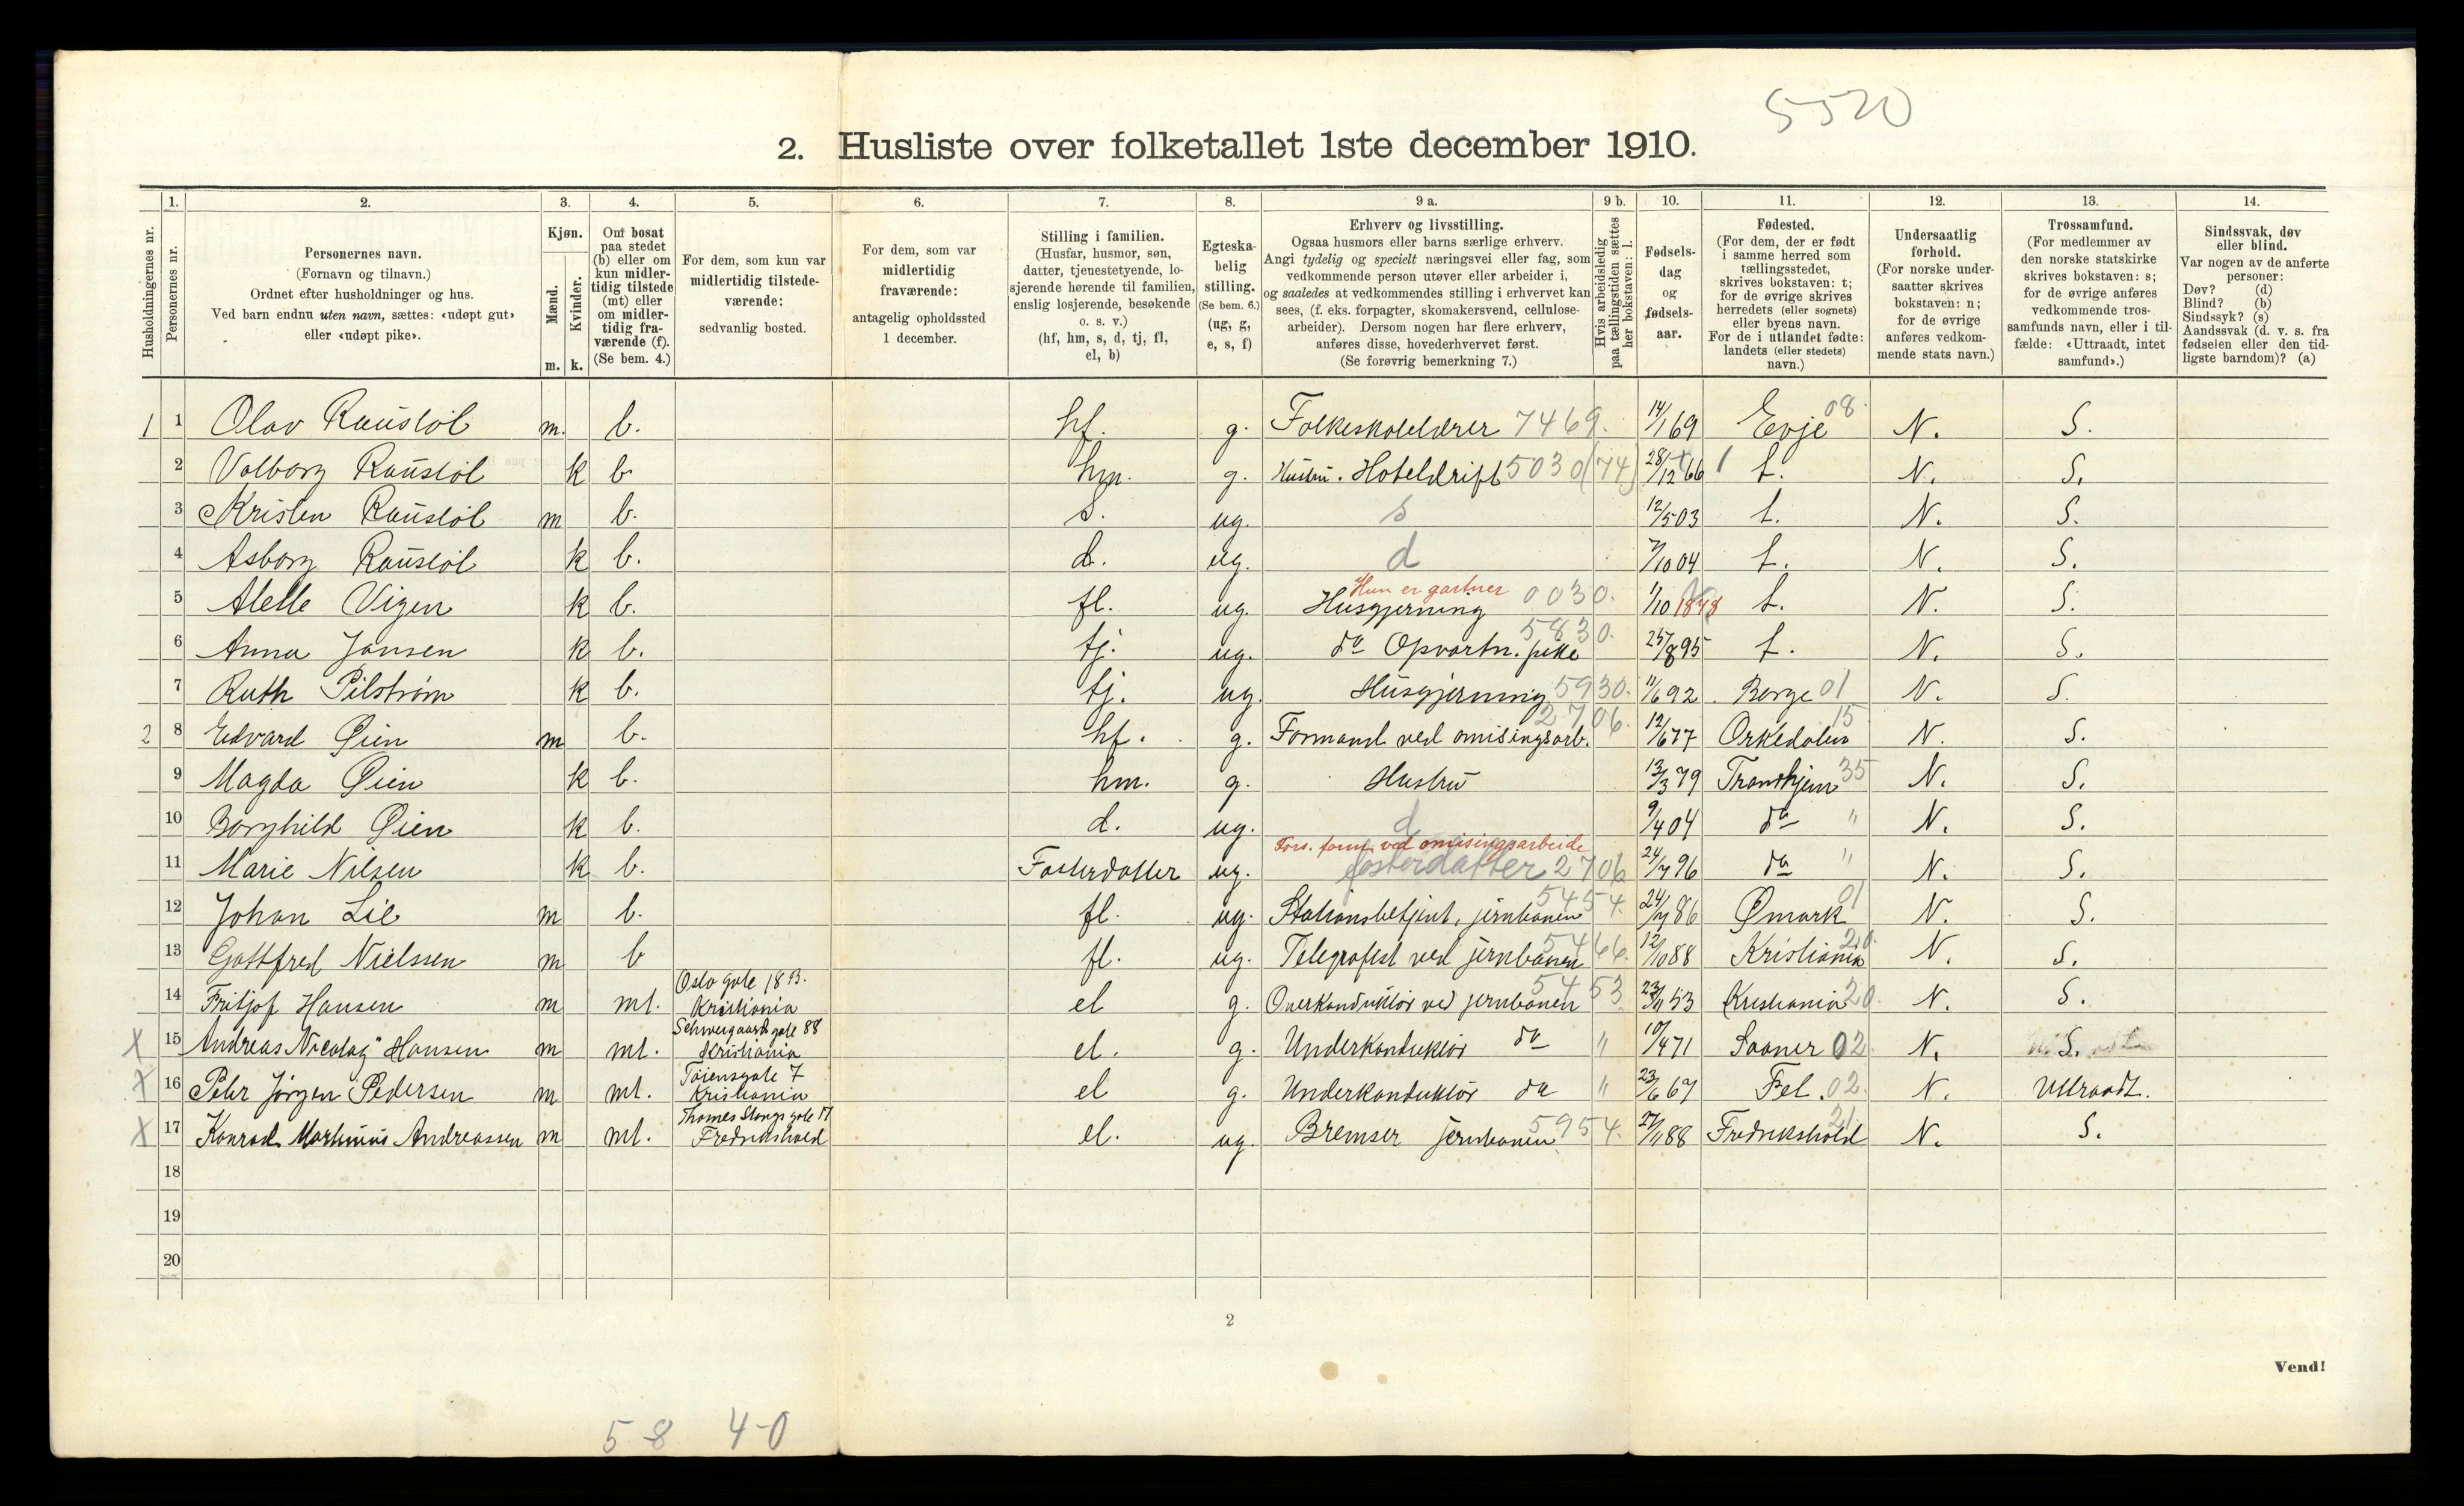 5520
2. Husliste over folketallet 1ste december 1910.
Husholdningernes nr.
1. Personernes nr.
2. Personernes navn.
(Fornavn og tilnavn.)
Ordnet efter husholdninger og hus.
Ved barn endnu uten navn, sættes: «udøpt gut»
eller «udøpt pike».
3. Kjøn.
Mænd. m.
Kvinder. k.
4. Om bosat
paa stedet
(b) eller om
kun midler-
tidig tilstede
(mt) eller
om midler-
tidig fra-
værende (f).
(Se bem. 4.)
5. For dem, som kun var
midlertidig tilstede-
værende:
sedvanlig bosted.
6. For dem, som var
midlertidig
fraværende:
antagelig opholdssted
1 december.
7. Stilling i familien.
(Husfar, husmor, søn,
datter, tjenestetyende, lo-
sjerende hørende til familien,
enslig losjerende, besøkende
o. s. v.)
(hf, hm, s, d, tj, fl,
el, b)
8. Egteska-
belig
stilling.
(Se bem. 6.)
(ug, g,
e, s, f)
9 a. Erhverv og livsstilling.
Ogsaa husmors eller barns særlige erhverv.
Angi tydelig og specielt næringsvei eller fag, som
vedkommende person utøver eller arbeider i,
og saaledes at vedkommendes stilling i erhvervet kan
sees, (f. eks. forpagter, skomakersvend, cellulose-
arbeider). Dersom nogen har flere erhverv,
anføres disse, hovederhvervet først.
(Se forøvrig bemerkning 7.)
9 b. Hvis arbeidsledig
paa tællingstiden sættes
her bokstaven: l.
10. Fødsels-
dag
og
fødsels-
aar.
11. Fødested.
(For dem, der er født
i samme herred som
tællingsstedet,
skrives bokstaven: t;
for de øvrige skrives
herredets (eller sognets)
eller byens navn.
For de i utlandet fødte:
landets (eller stedets)
navn.)
12. Undersaatlig
forhold.
(For norske under-
saatter skrives
bokstaven: n;
for de øvrige
anføres vedkom-
mende stats navn.)
13. Trossamfund.
(For medlemmer av
den norske statskirke
skrives bokstaven: s;
for de øvrige anføres
vedkommende tros-
samfunds navn, eller i til-
fælde: «Uttraadt, intet
samfund».)
14. Sindssvak, døv
eller blind.
Var nogen av de anførte
personer:
Døv? (d)
Blind? (b)
Sindssyk? (s)
Aandssvak (d. v. s. fra
fødselen eller den tid-
ligste barndom)? (a)
1 1 Olav Rausløl m. b. hf. g. Folkeskolelærer 7469. 14/1 69 Evje 08. N. S.
2 Valborg Rausløl k b hm. g. Hustru. Hoteldrift 5030 (74) 28/12 66 t. N. S.
3 Kristen Rausløl m b. s. ug. s 12/5 03 t. N. S.
4 Asborg Rausløl k b. d. ug. d 7/10 04 t. N. S.
Hun er gartner
5 Alette Vigen k b. fl. ug. Husgjerning 0030. 1/10 1848 t. N. S.
6 Anna Jansen k b. tj. ug. do Opvartn. pike 5830. 25/8 95 t. N. S.
7 Ruth Pilstrøm k b. tj. ug. Husgjerning 5930. 11/6 92 Borge 01 N. S.
2 8 Edvard Øien m b. hf. g. Formand ved omisingsarb. 2706. 12/6 77 Orkedalen 15 N. S.
9 Magda Øien k b. hm. g. Hustru 13/3 79 Trondhjem 35 N. S.
10 Borghild Øien k b. d. ug. d 9/4 04 do " N. S.
Fors. form. ved omisingsarbeide
11 Marie Nilsen k b. Fosterdatter ug. fosterdatter 2706 24/7 96 do " N. S.
12 Johan Lie m b. fl. ug. Stationsbetjent, jernbanen 5454. 24/7 86 Ømark 01 N. S.
13 Gottfred Nielssen m b fl. ug. Telegrafist ved jernbanen 5466. 12/10 88 Kristiania 20. N. S.
Oslo gate 18 B.
14 Fritjof Hansen m mt. Kristiania el g. Overkonduktør ved jernbanen 5453 23/11 53 Kristiania 20. N. S.
Schweigaards gate 88
X 15 Andreas Nicolay Hansen m mt. Kristiania el. g. Underkonduktør do " 10/4 71 Saaner 02 N. S.
Tøiensgate 7
X 16 Peter Jørgen Pedersen m mt. Kristiania el g. Underkonduktør do " 23/6 67 Fet. 02. N. Uttraadt.
Thomes Stangs gate 17
X 17 Konrad Martinius Andreassen m mt. Fredrikshald el. ug. Bremser jernbanen 5954. 27/11 88 Fredrikshald 21 N. S.
18
19
20
2
Vend!
58 40